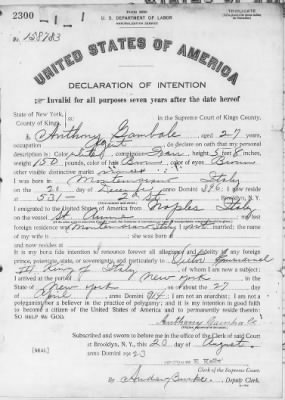 2300
Form 2203
U. S. DEPARTMENT OF LABOR
NATURALIZATION SERVICE
TRIPLICATE
No. 158783
UNITED STATES OF AMERICA
DECLARATION OF INTENTION
Invalid for all purposes seven years after the date hereof
State of New York,
County of Kings, ss:
In the Supreme Court of Kings County.
I, Anthony Gambale, aged 27 years,
occupation Agent, do declare on oath that my personal
description is: Color white, complexion Fair, height 5 feet 8 inches,
weight 150 pounds, color of hair Brown, color of eyes Brown
other visible distinctive marks none
I was born in Italy
on the 21 day of December, anno Domini 1896; I now reside
at 531 2nd St, Brooklyn, N. Y.
I emigrated to the United States of America from Naples Italy
on the vessel St Anna; my last
foreign residence was Italy; I am not married; the name
of my wife is; she was born
and now resides at
It is my bona fide intention to renounce forever all allegiance and fidelity to any foreign
prince, potentate, state, or sovereignty, and particularly to Victor Emmanuel
III King of Italy, of whom I am now a subject; I
arrived at the port of New York, in the
State of New York, on or about the 27 day
of April, anno Domini 1914; I am not an anarchist; I am not a
polygamist nor a believer in the practice of polygamy; and it is my intention in good faith
to become a citizen of the United States of America and to permanently reside therein:
SO HELP ME GOD.
Anthony Gambale
Subscribed and sworn to before me in the office of the Clerk of said Court
at Brooklyn, N. Y., this 20 day of August,
anno Domini 1923
[SEAL]
Clerk of the Supreme Court.
By, Deputy Clerk.